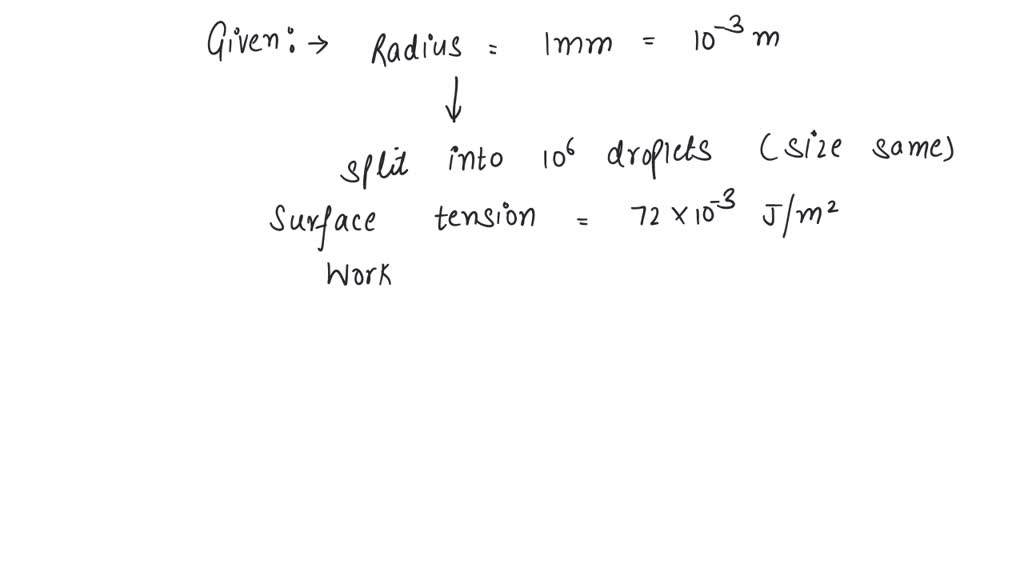 Given:→ Radius = 1mm = 10⁻³ m
↓
split into 10⁶ droplets (size same)
Surface tension = 72 × 10⁻³ J/m²
Work